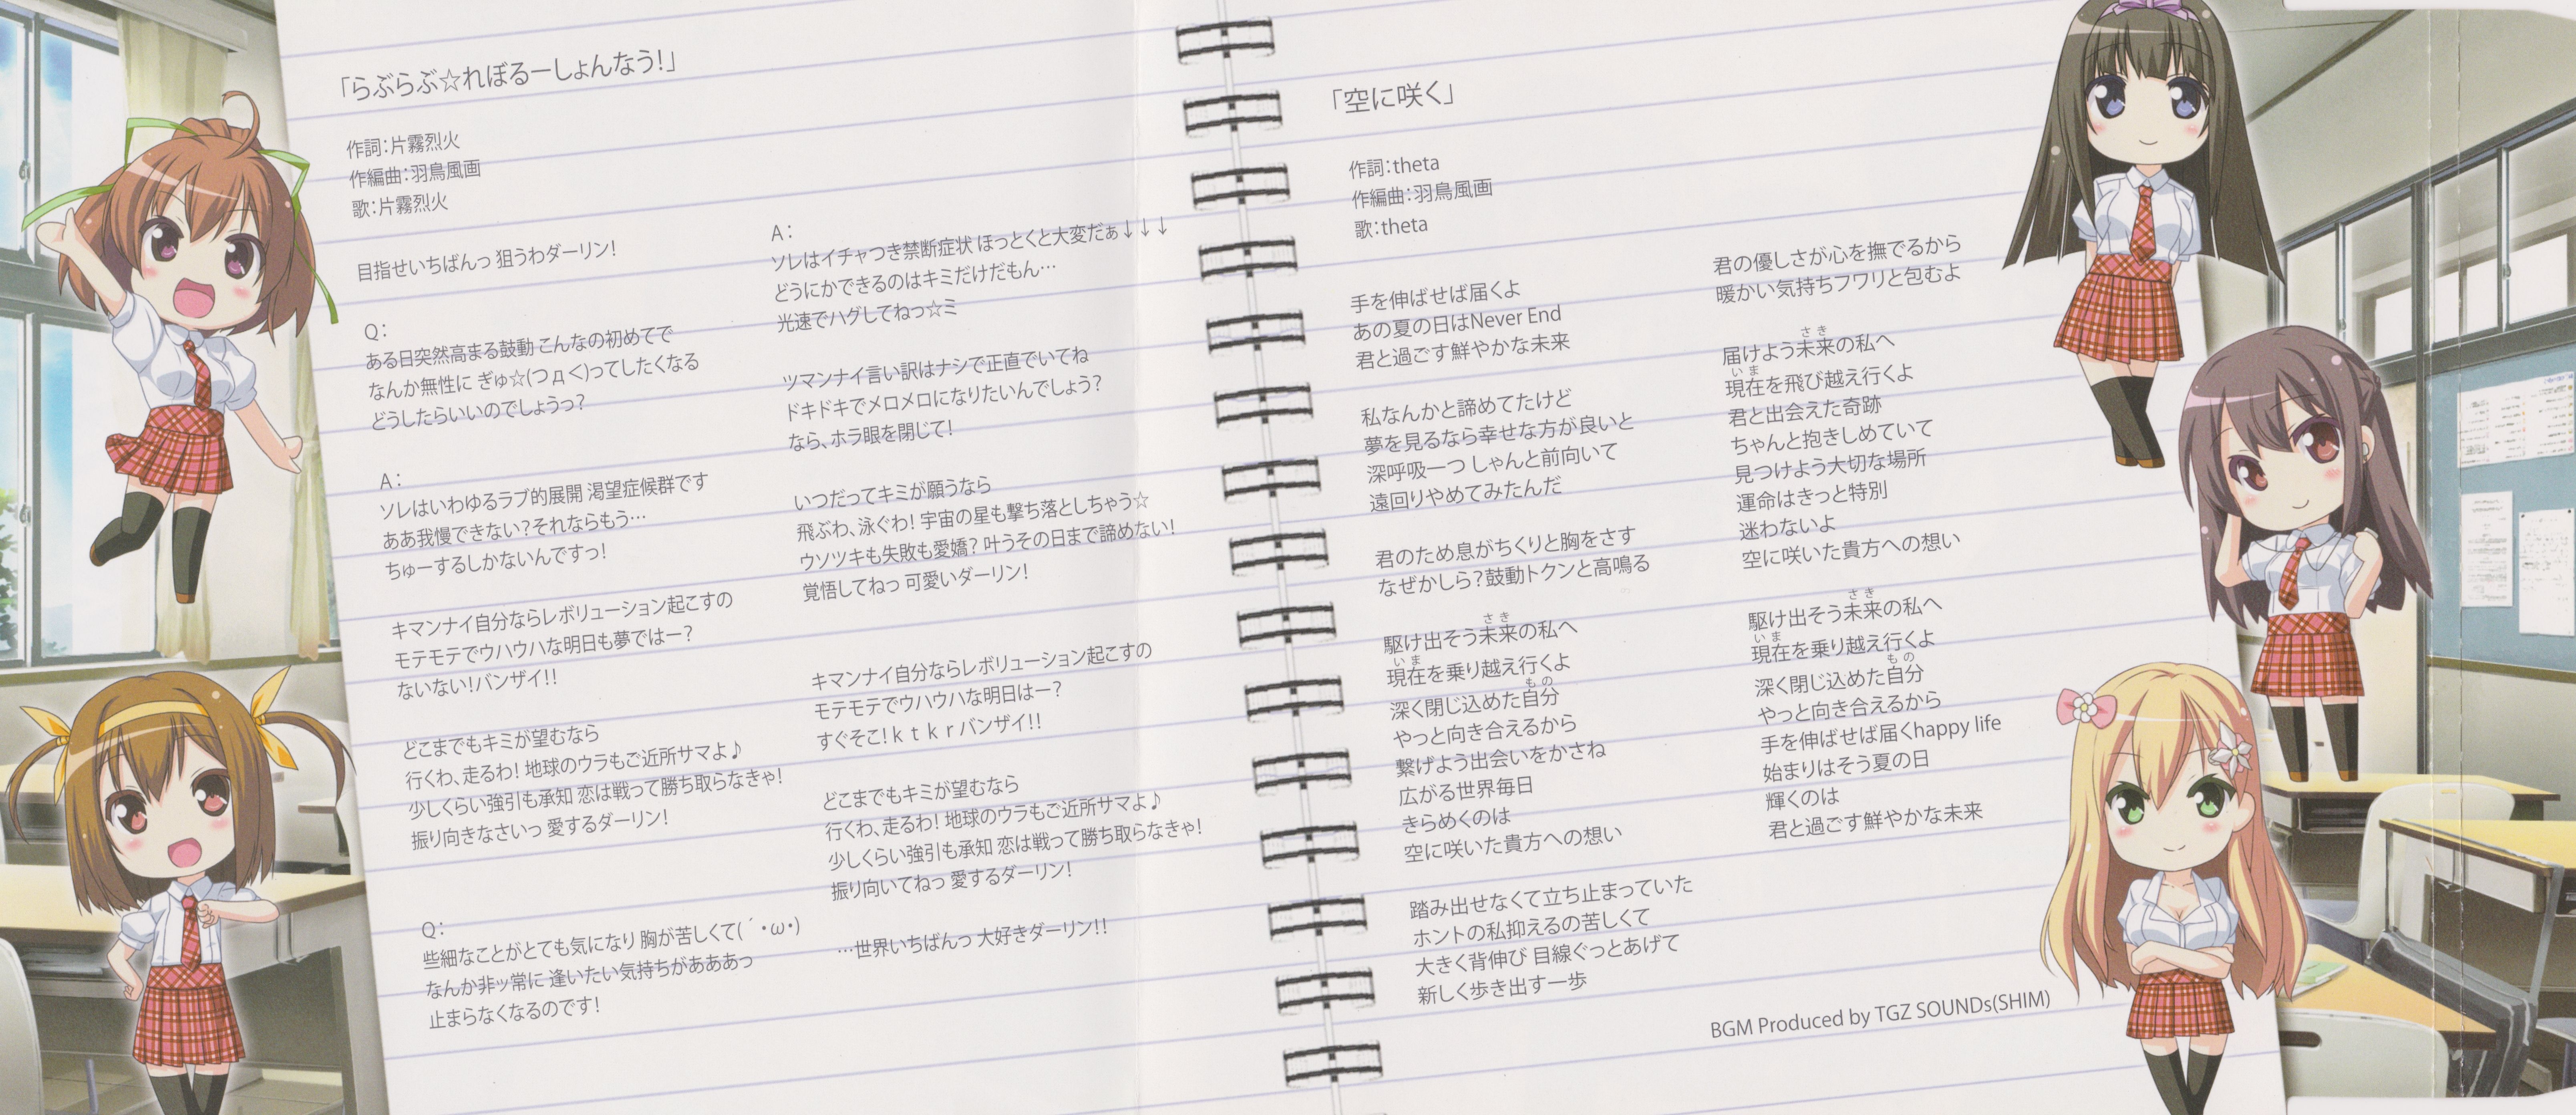 「らぶらぶ☆れぼるーしょんなう!」
作詞:片霧烈火
作編曲:羽鳥風画
歌:片霧烈火
目指せいちばんっ 狙うわダーリン!
Q:
ある日突然高まる鼓動 こんなの初めてで
なんか無性に ぎゅ☆(つд<)ってしたくなる
どうしたらいいのでしょうっ?
A:
ソレはいわゆるラブ的展開 渇望症候群です
ああ我慢できない?それならもう…
ちゅーするしかないんですっ!
キマンナイ自分ならレボリューション起こすの
モテモテでウハウハな明日も夢ではー?
ないない!バンザイ!!
どこまでもキミが望むなら
行くわ、走るわ! 地球のウラもご近所サマよ♪
少しくらい強引も承知 恋は戦って勝ち取らなきゃ!
振り向きなさいっ 愛するダーリン!
Q:
些細なことがとても気になり 胸が苦しくて(´・ω・)
なんか非ッ常に 逢いたい気持ちがあああっ
止まらなくなるのです!
A:
ソレはイチャつき禁断症状 ほっとくと大変だぁ↓↓↓
どうにかできるのはキミだけだもん…
光速でハグしてねっ☆ミ
ツマンナイ言い訳はナシで正直でいてね
ドキドキでメロメロになりたいんでしょう?
なら、ホラ眼を閉じて!
いつだってキミが願うなら
飛ぶわ、泳ぐわ! 宇宙の星も撃ち落としちゃう☆
ウソツキも失敗も愛嬌? 叶うその日まで諦めない!
覚悟してねっ 可愛いダーリン!
キマンナイ自分ならレボリューション起こすの
モテモテでウハウハな明日はー?
すぐそこ!ktkrバンザイ!!
どこまでもキミが望むなら
行くわ、走るわ! 地球のウラもご近所サマよ♪
少しくらい強引も承知 恋は戦って勝ち取らなきゃ!
振り向いてねっ 愛するダーリン!
…世界いちばんっ 大好きダーリン!!
「空に咲く」
作詞:theta
作編曲:羽鳥風画
歌:theta
手を伸ばせば届くよ
あの夏の日はNever End
君と過ごす鮮やかな未来
私なんかと諦めてたけど
夢を見るなら幸せな方が良いと
深呼吸一つ しゃんと前向いて
遠回りやめてみたんだ
君のため息がちくりと胸をさす
なぜかしら?鼓動トクンと高鳴る
さき
駆け出そう未来の私へ
いま
現在を乗り越え行くよ
もの
深く閉じ込めた自分
やっと向き合えるから
繋げよう出会いをかさね
広がる世界毎日
きらめくのは
空に咲いた貴方への想い
踏み出せなくて立ち止まっていた
ホントの私抑えるの苦しくて
大きく背伸び 目線ぐっとあげて
新しく歩き出す一歩
君の優しさが心を撫でるから
暖かい気持ちフワリと包むよ
さき
届けよう未来の私へ
いま
現在を飛び越え行くよ
君と出会えた奇跡
ちゃんと抱きしめていて
見つけよう大切な場所
運命はきっと特別
迷わないよ
空に咲いた貴方への想い
さき
駆け出そう未来の私へ
いま
現在を乗り越え行くよ
もの
深く閉じ込めた自分
やっと向き合えるから
手を伸ばせば届くhappy life
始まりはそう夏の日
輝くのは
君と過ごす鮮やかな未来
BGM Produced by TGZ SOUNDs(SHIM)